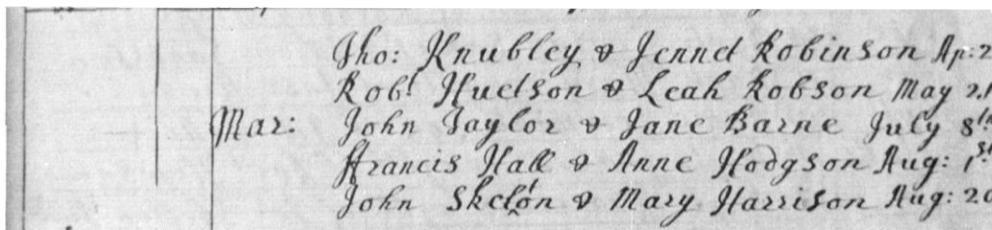 Tho: Knubley & Jennet Robinson Ap: 2
Robt Hudson & Leah Robson May 21
Mar: John Taylor & Jane Barne July 8th
ffrancis Hall & Anne Hodgson Aug: 1st
John Skelton & Mary Harrison Aug: 20